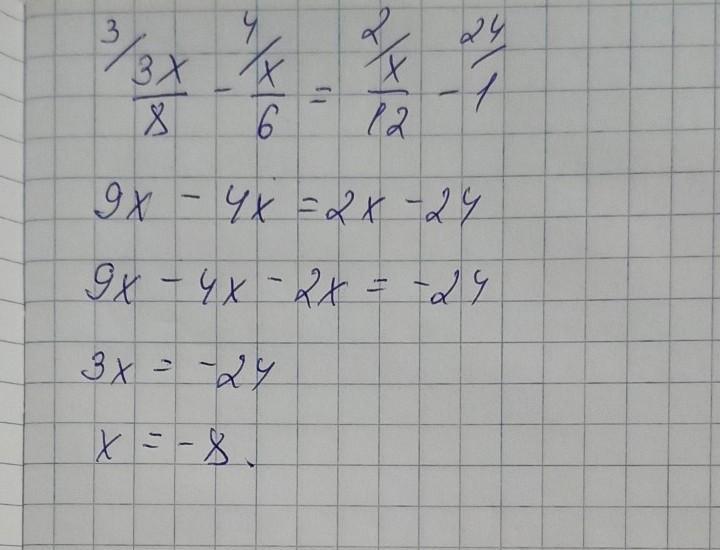 3/ 3x/8 - 4/ x/6 = 2/ x/12 - 24/ 1
9x - 4x = 2x - 24
9x - 4x - 2x = -24
3x = -24
x = -8.